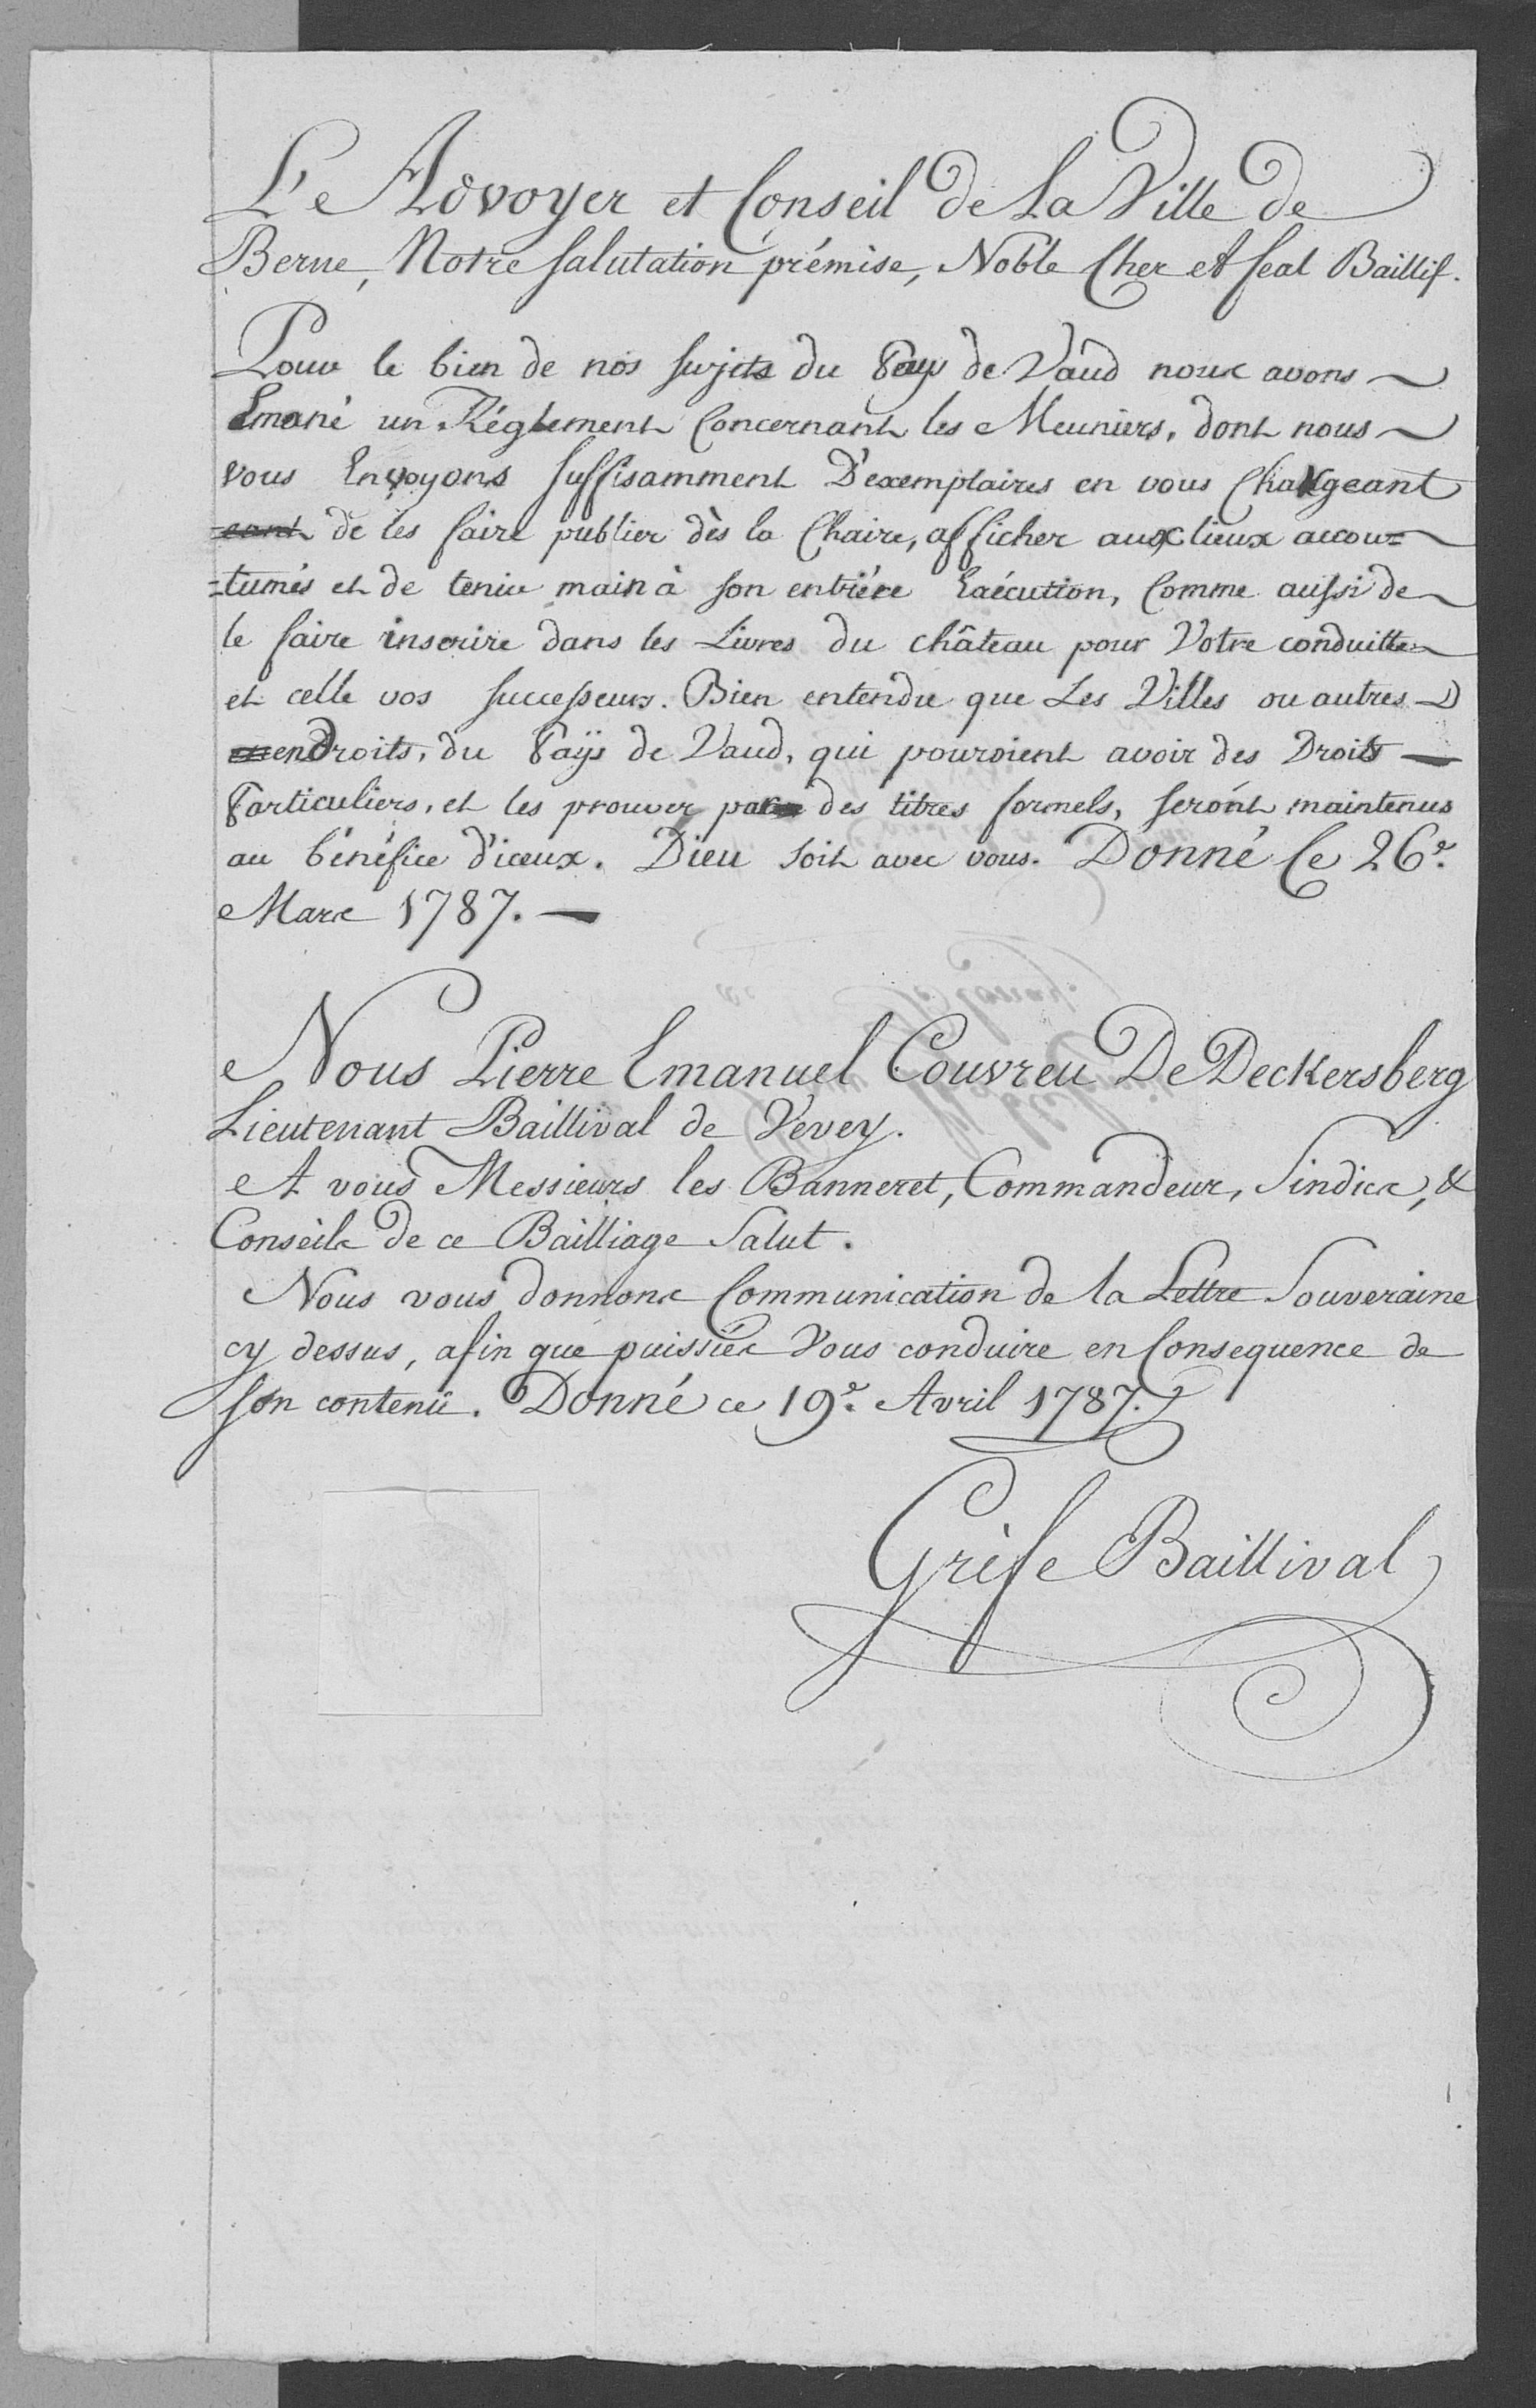 L'e Advoyer et Conseil de La Ville de
Berne, Notre salutation prémise, Noble Cher et feal Baillif.
Pour le bien de nos sujets du Pays de Vaud nous avons
Emané un Réglement Concernant les Meuniers, dont nous
vous Envoyons suffisamment D'exemplaires en vous Chargeant
eant de les faire publier dès la Chaire, afficher aux lieux accou=
=tumés et de tenir main à son entiére Exécution, Comme aussi de
le faire inscrire dans les Livres du château pour Votre conduitte
et celle vos successeurs. Bien entendu que Les Villes ou autres
endroits, du Païs de Vaud, qui pouroient avoir des Droits
Particuliers, et les prouver par des titres formels, seront maintenus
au bénéfice d'iceux. Dieu soit avec vous. Donné Ce 26e.
Mars 1787.
Nous Pierre Emanuel Couvreu De Deckersberg
Lieutenant Baillival de Vevey.
A vous Messieurs les Banneret, Commandeur, Sindics, &
Conseils de ce Bailliage Salut.
Nous vous donnons Communication de la Lettre Souveraine
cy dessus, afin que puissiés Vous conduire en Consequence de
son contenü. Donné ce 19e. Avril 1787.
Gréfe Baillival